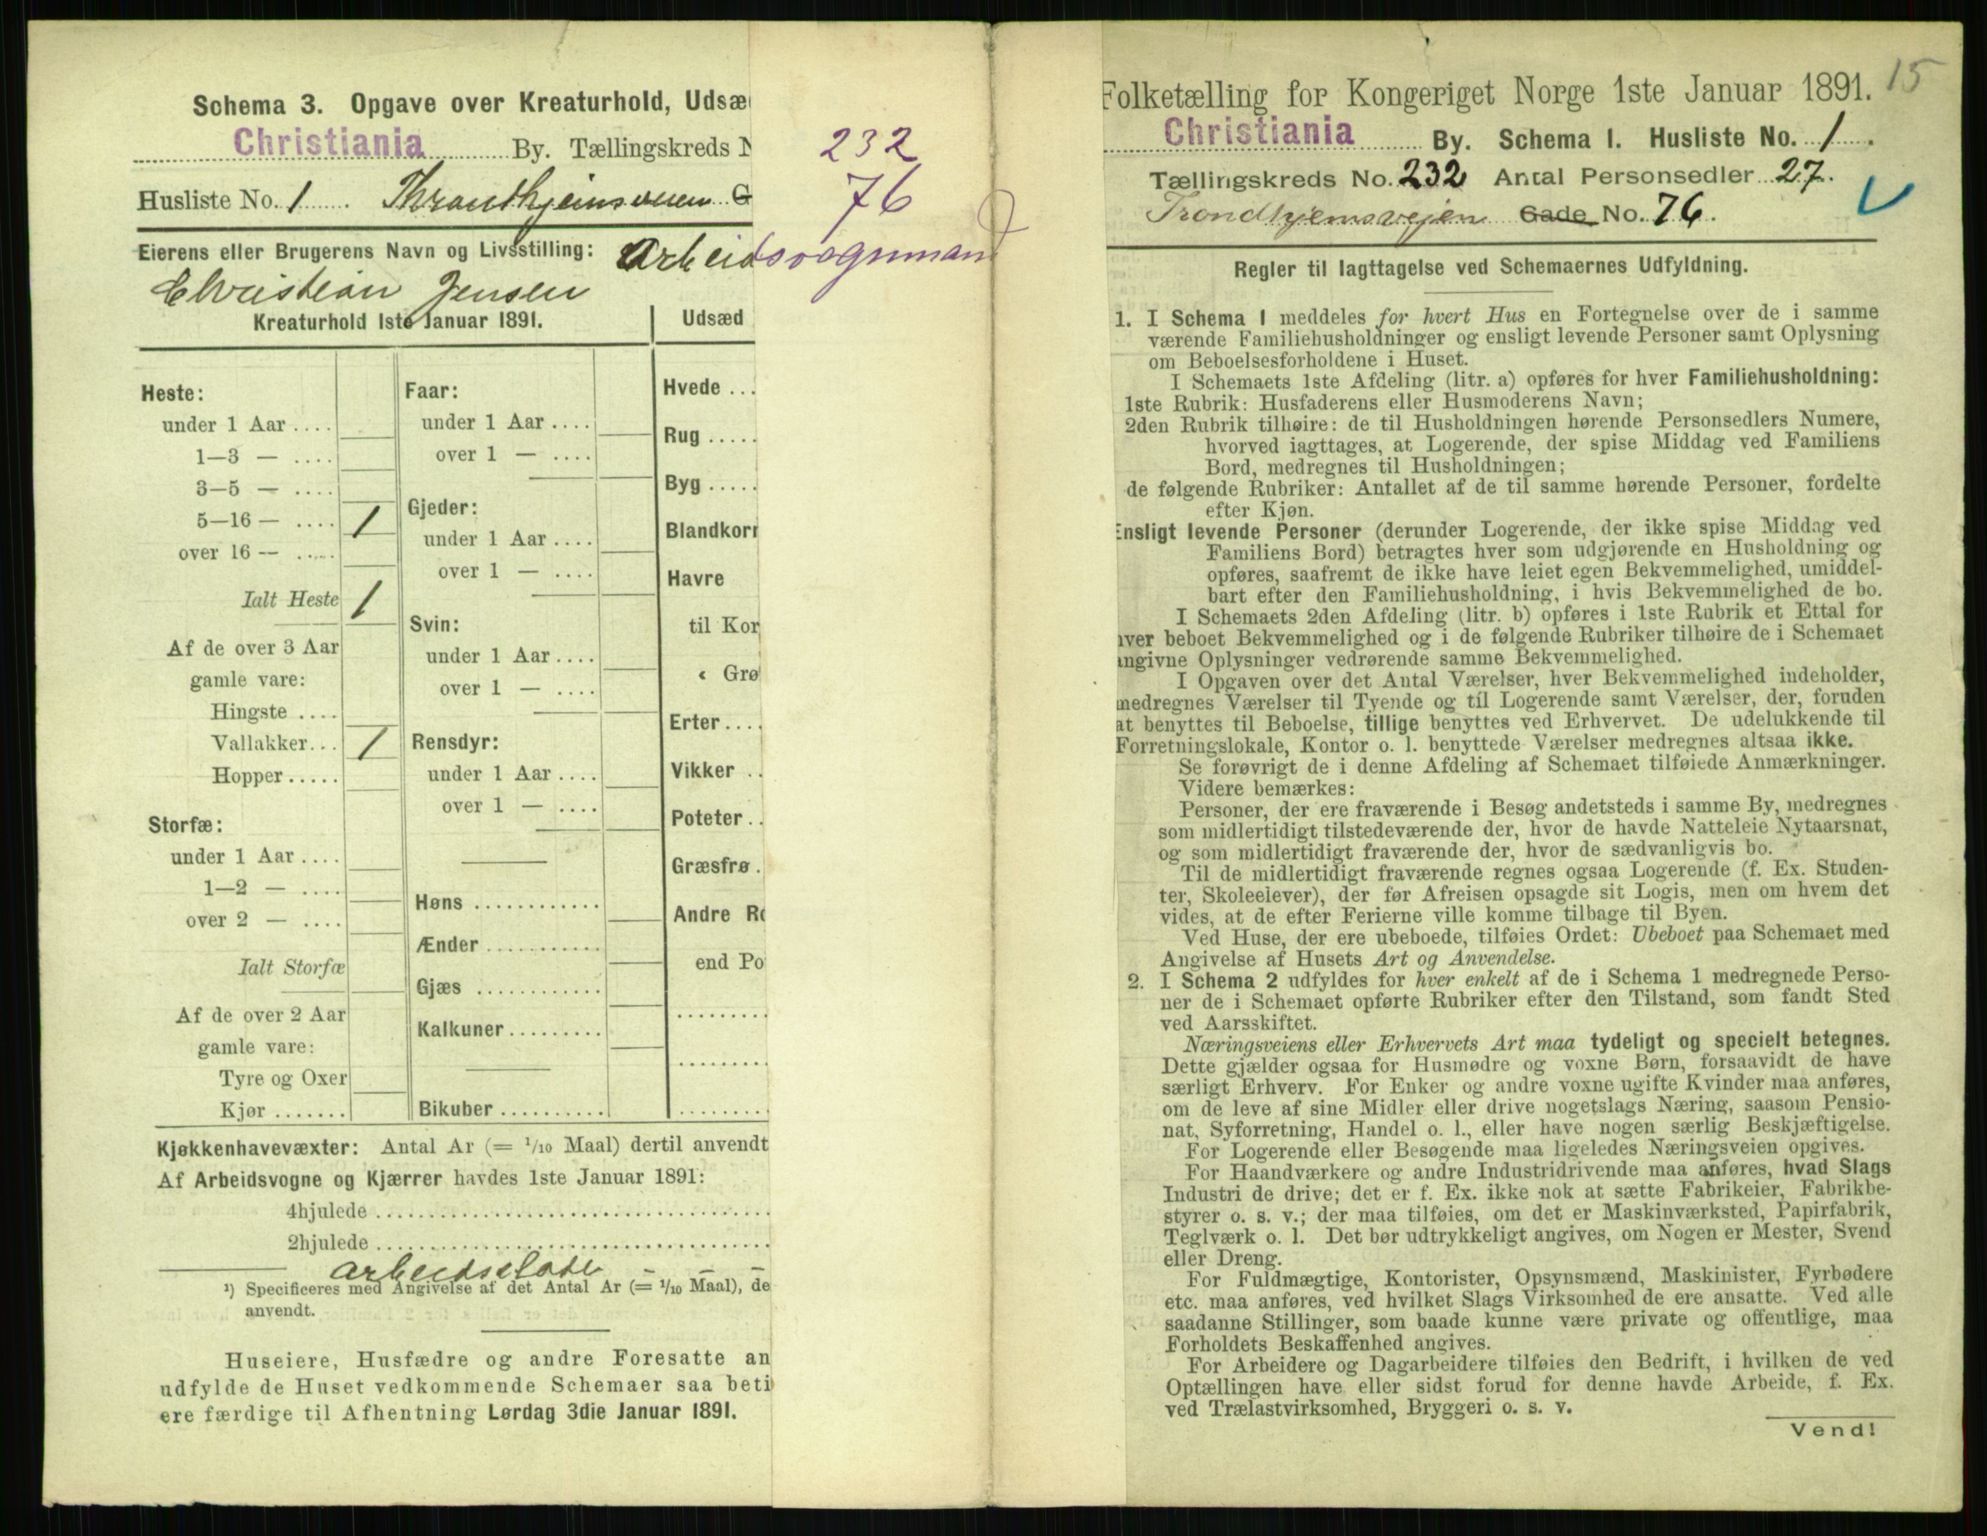 Schema 3. Opgave over Kreaturhold, Udsæ
Christiania By. Tællingskreds N 232
Husliste No. 1 Throndhjemsveien G 76
Eierens eller Brugerens Navn og Livsstilling: Arbeidsvognmand
Christian Jensen
Kreaturhold 1ste Januar 1891.
Udsæd
Heste:
under 1 Aar ....
1—3 — ....
3—5 — ....
5—16 — .... 1
over 16 — .....
Ialt Heste 1
Af de over 3 Aar
gamle vare:
Hingste ....
Vallakker... 1
Hopper .....
Storfæ:
under 1 Aar ....
1—2 — ....
over 2 — ....
Ialt Storfæ
Af de over 2 Aar
gamle vare:
Tyre og Oxer
Kjør .......
Faar:
under 1 Aar ....
over 1 — ....
Gjeder:
under 1 Aar ....
over 1 — ....
Svin:
under 1 Aar ....
over 1 — ....
Rensdyr:
under 1 Aar ....
over 1 — ....
Høns ............
Ænder ...........
Gjæs ............
Kalkuner .........
Bikuber ..........
Hvede ...
Rug .....
Byg .....
Blandkorn
Havre
til Kor
« Grø
Erter ....
Vikker ..
Poteter ..
Græsfrø .
Andre Ro
end Po
Kjøkkenhavevæxter: Antal Ar (= 1/10 Maal) dertil anvendt
Af Arbeidsvogne og Kjærrer havdes 1ste Januar 1891:
4hjulede
2hjulede
arbeidsslæde – – –
¹) Specificeres med Angivelse af det Antal Ar (= 1/10 Maal), de
anvendt.
Huseiere, Husfædre og andre Foresatte an
udfylde de Huset vedkommende Schemaer saa beti
ere færdige til Afhentning Lørdag 3die Januar 1891.
15
Folketælling for Kongeriget Norge 1ste Januar 1891.
Christiania By. Schema I. Husliste No. 1.
Tællingskreds No. 232 Antal Personsedler 27.
Trondhjemsvejen Gade No. 76.
Regler til Iagttagelse ved Schemaernes Udfyldning.
1. I Schema I meddeles for hvert Hus en Fortegnelse over de i samme
værende Familiehusholdninger og ensligt levende Personer samt Oplysning
om Beboelsesforholdene i Huset.
I Schemaets 1ste Afdeling (litr. a) opføres for hver Familiehusholdning:
1ste Rubrik: Husfaderens eller Husmoderens Navn;
2den Rubrik tilhøire: de til Husholdningen hørende Personsedlers Numere,
hvorved iagttages, at Logerende, der spise Middag ved Familiens
Bord, medregnes til Husholdningen;
de følgende Rubriker: Antallet af de til samme hørende Personer, fordelte
efter Kjøn.
Ensligt levende Personer (derunder Logerende, der ikke spise Middag ved
Familiens Bord) betragtes hver som udgjørende en Husholdning og
opføres, saafremt de ikke have leiet egen Bekvemmelighed, umiddel-
bart efter den Familiehusholdning, i hvis Bekvemmelighed de bo.
I Schemaets 2den Afdeling (litr. b) opføres i 1ste Rubrik et Ettal for
hver beboet Bekvemmelighed og i de følgende Rubriker tilhøire de i Schemaet
angivne Oplysninger vedrørende samme Bekvemmelighed.
I Opgaven over det Antal Værelser, hver Bekvemmelighed indeholder,
medregnes Værelser til Tyende og til Logerende samt Værelser, der, foruden
at benyttes til Beboelse, tillige benyttes ved Erhvervet. De udelukkende til
Forretningslokale, Kontor o. l. benyttede Værelser medregnes altsaa ikke.
Se forøvrigt de i denne Afdeling af Schemaet tilføiede Anmærkninger.
Videre bemærkes:
Personer, der ere fraværende i Besøg andetsteds i samme By, medregnes
som midlertidigt tilstedeværende der, hvor de havde Natteleie Nytaarsnat,
og som midlertidigt fraværende der, hvor de sædvanligvis bo.
Til de midlertidigt fraværende regnes ogsaa Logerende (f. Ex. Studen-
ter, Skoleelever), der før Afreisen opsagde sit Logis, men om hvem det
vides, at de efter Ferierne ville komme tilbage til Byen.
Ved Huse, der ere ubeboede, tilføies Ordet: Ubeboet paa Schemaet med
Angivelse af Husets Art og Anvendelse.
2. I Schema 2 udfyldes for hver enkelt af de i Schema 1 medregnede Perso-
ner de i Schemaet opførte Rubriker efter den Tilstand, som fandt Sted
ved Aarsskiftet.
Næringsveiens eller Erhvervets Art maa tydeligt og specielt betegnes.
Dette gjælder ogsaa for Husmødre og voxne Børn, forsaavidt de have
særligt Erhverv. For Enker og andre voxne ugifte Kvinder maa anføres,
om de leve af sine Midler eller drive nogetslags Næring, saasom Pensio-
nat, Syforretning, Handel o. l., eller have nogen særlig Beskjæftigelse.
For Logerende eller Besøgende maa ligeledes Næringsveien opgives.
For Haandværkere og andre Industridrivende maa anføres, hvad Slags
Industri de drive; det er f. Ex. ikke nok at sætte Fabrikeier, Fabrikbe-
styrer o. s. v.; der maa tilføies, om det er Maskinværksted, Papirfabrik,
Teglværk o. l. Det bør udtrykkeligt angives, om Nogen er Mester, Svend
eller Dreng.
For Fuldmægtige, Kontorister, Opsynsmænd, Maskinister, Fyrbødere
etc. maa anføres, ved hvilket Slags Virksomhed de ere ansatte. Ved alle
saadanne Stillinger, som baade kunne være private og offentlige, maa
Forholdets Beskaffenhed angives.
For Arbeidere og Dagarbeidere tilføies den Bedrift, i hvilken de ved
Optællingen have eller sidst forud for denne havde Arbeide, f. Ex.
ved Trælastvirksomhed, Bryggeri o. s. v.
Vend!